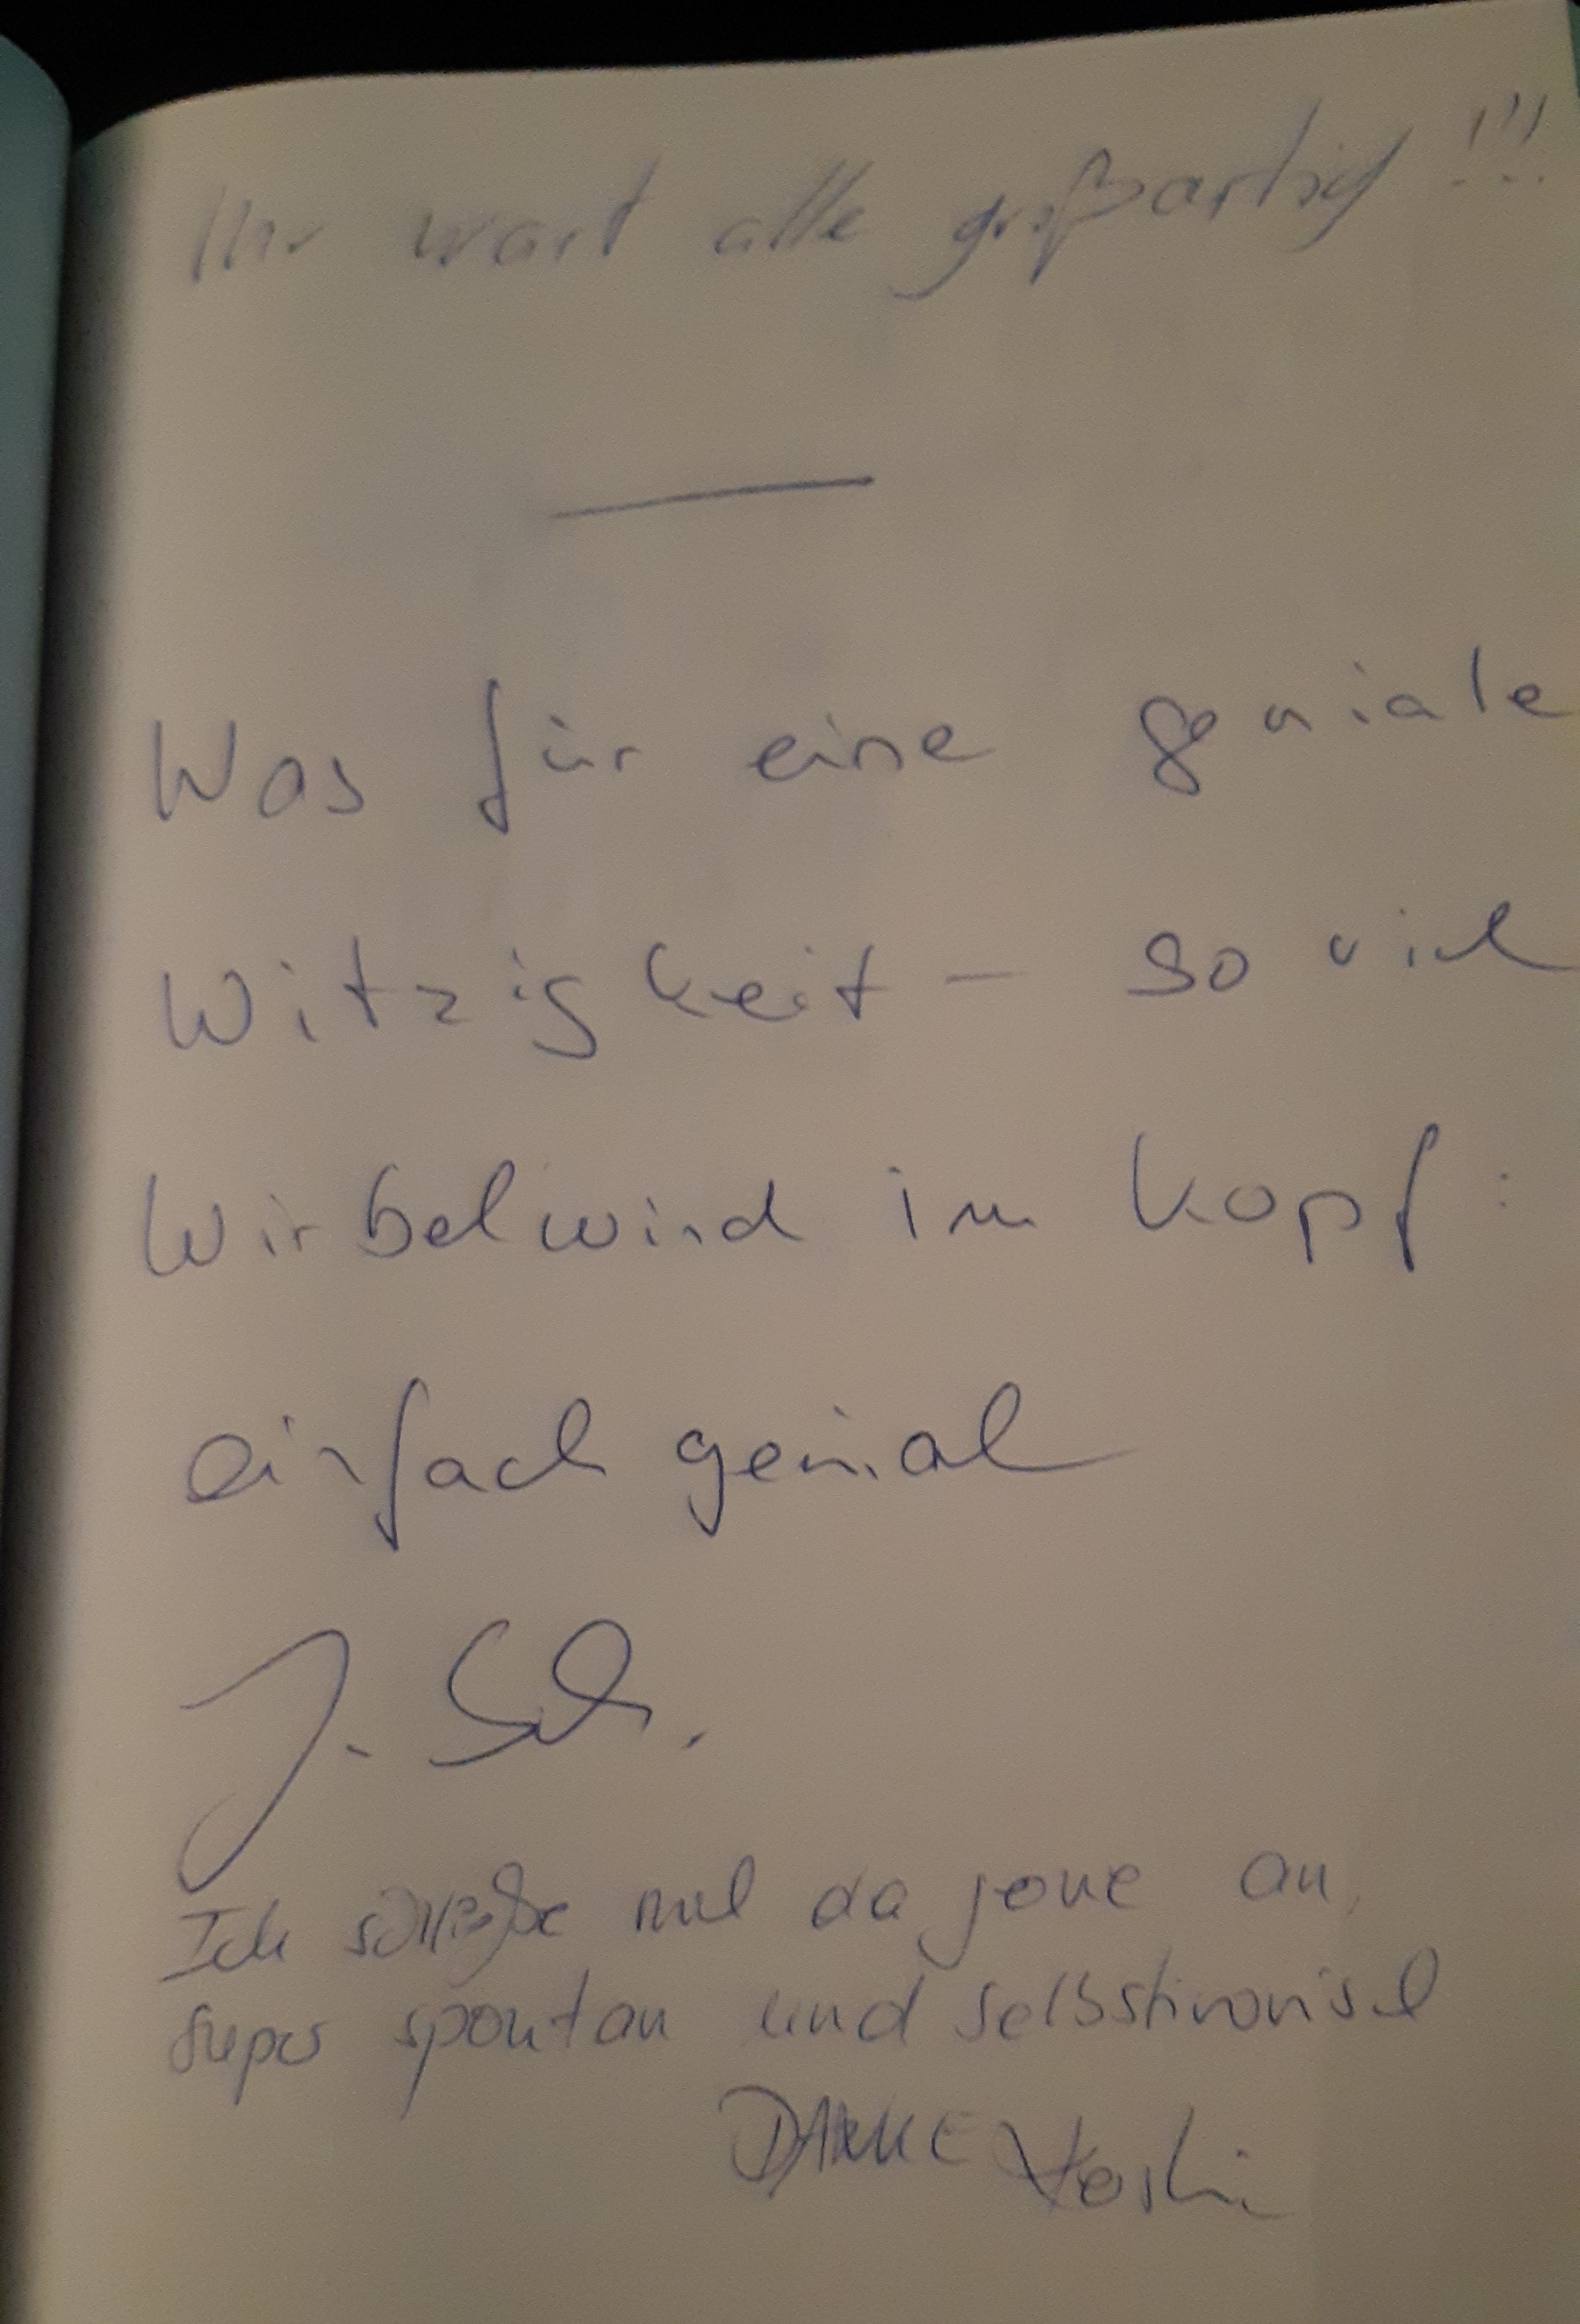 Ihr wart alle großartig!!!
Was für eine geniale
Witzigkeit – so viel
Wirbelwind im Kopf:
einfach genial
J. Sch.
Ich schließe mal da gerne an,
super spontan und selbstironisch
DANKE